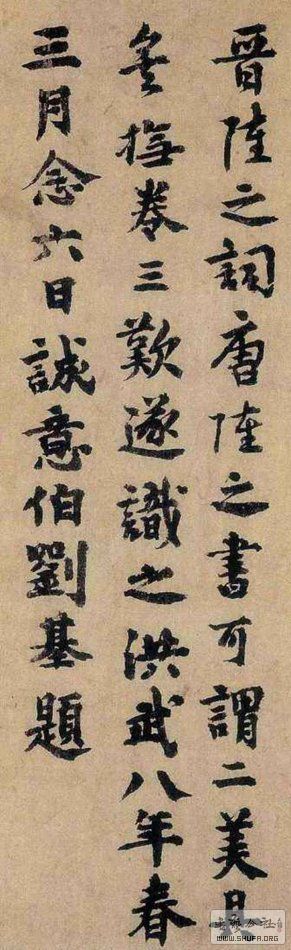 晉陸之詞唐陸之書可謂二美具
矣撫卷三歎遂識之洪武八年春
三月念六日誠意伯劉基題
WWW.SHUFA.ORG